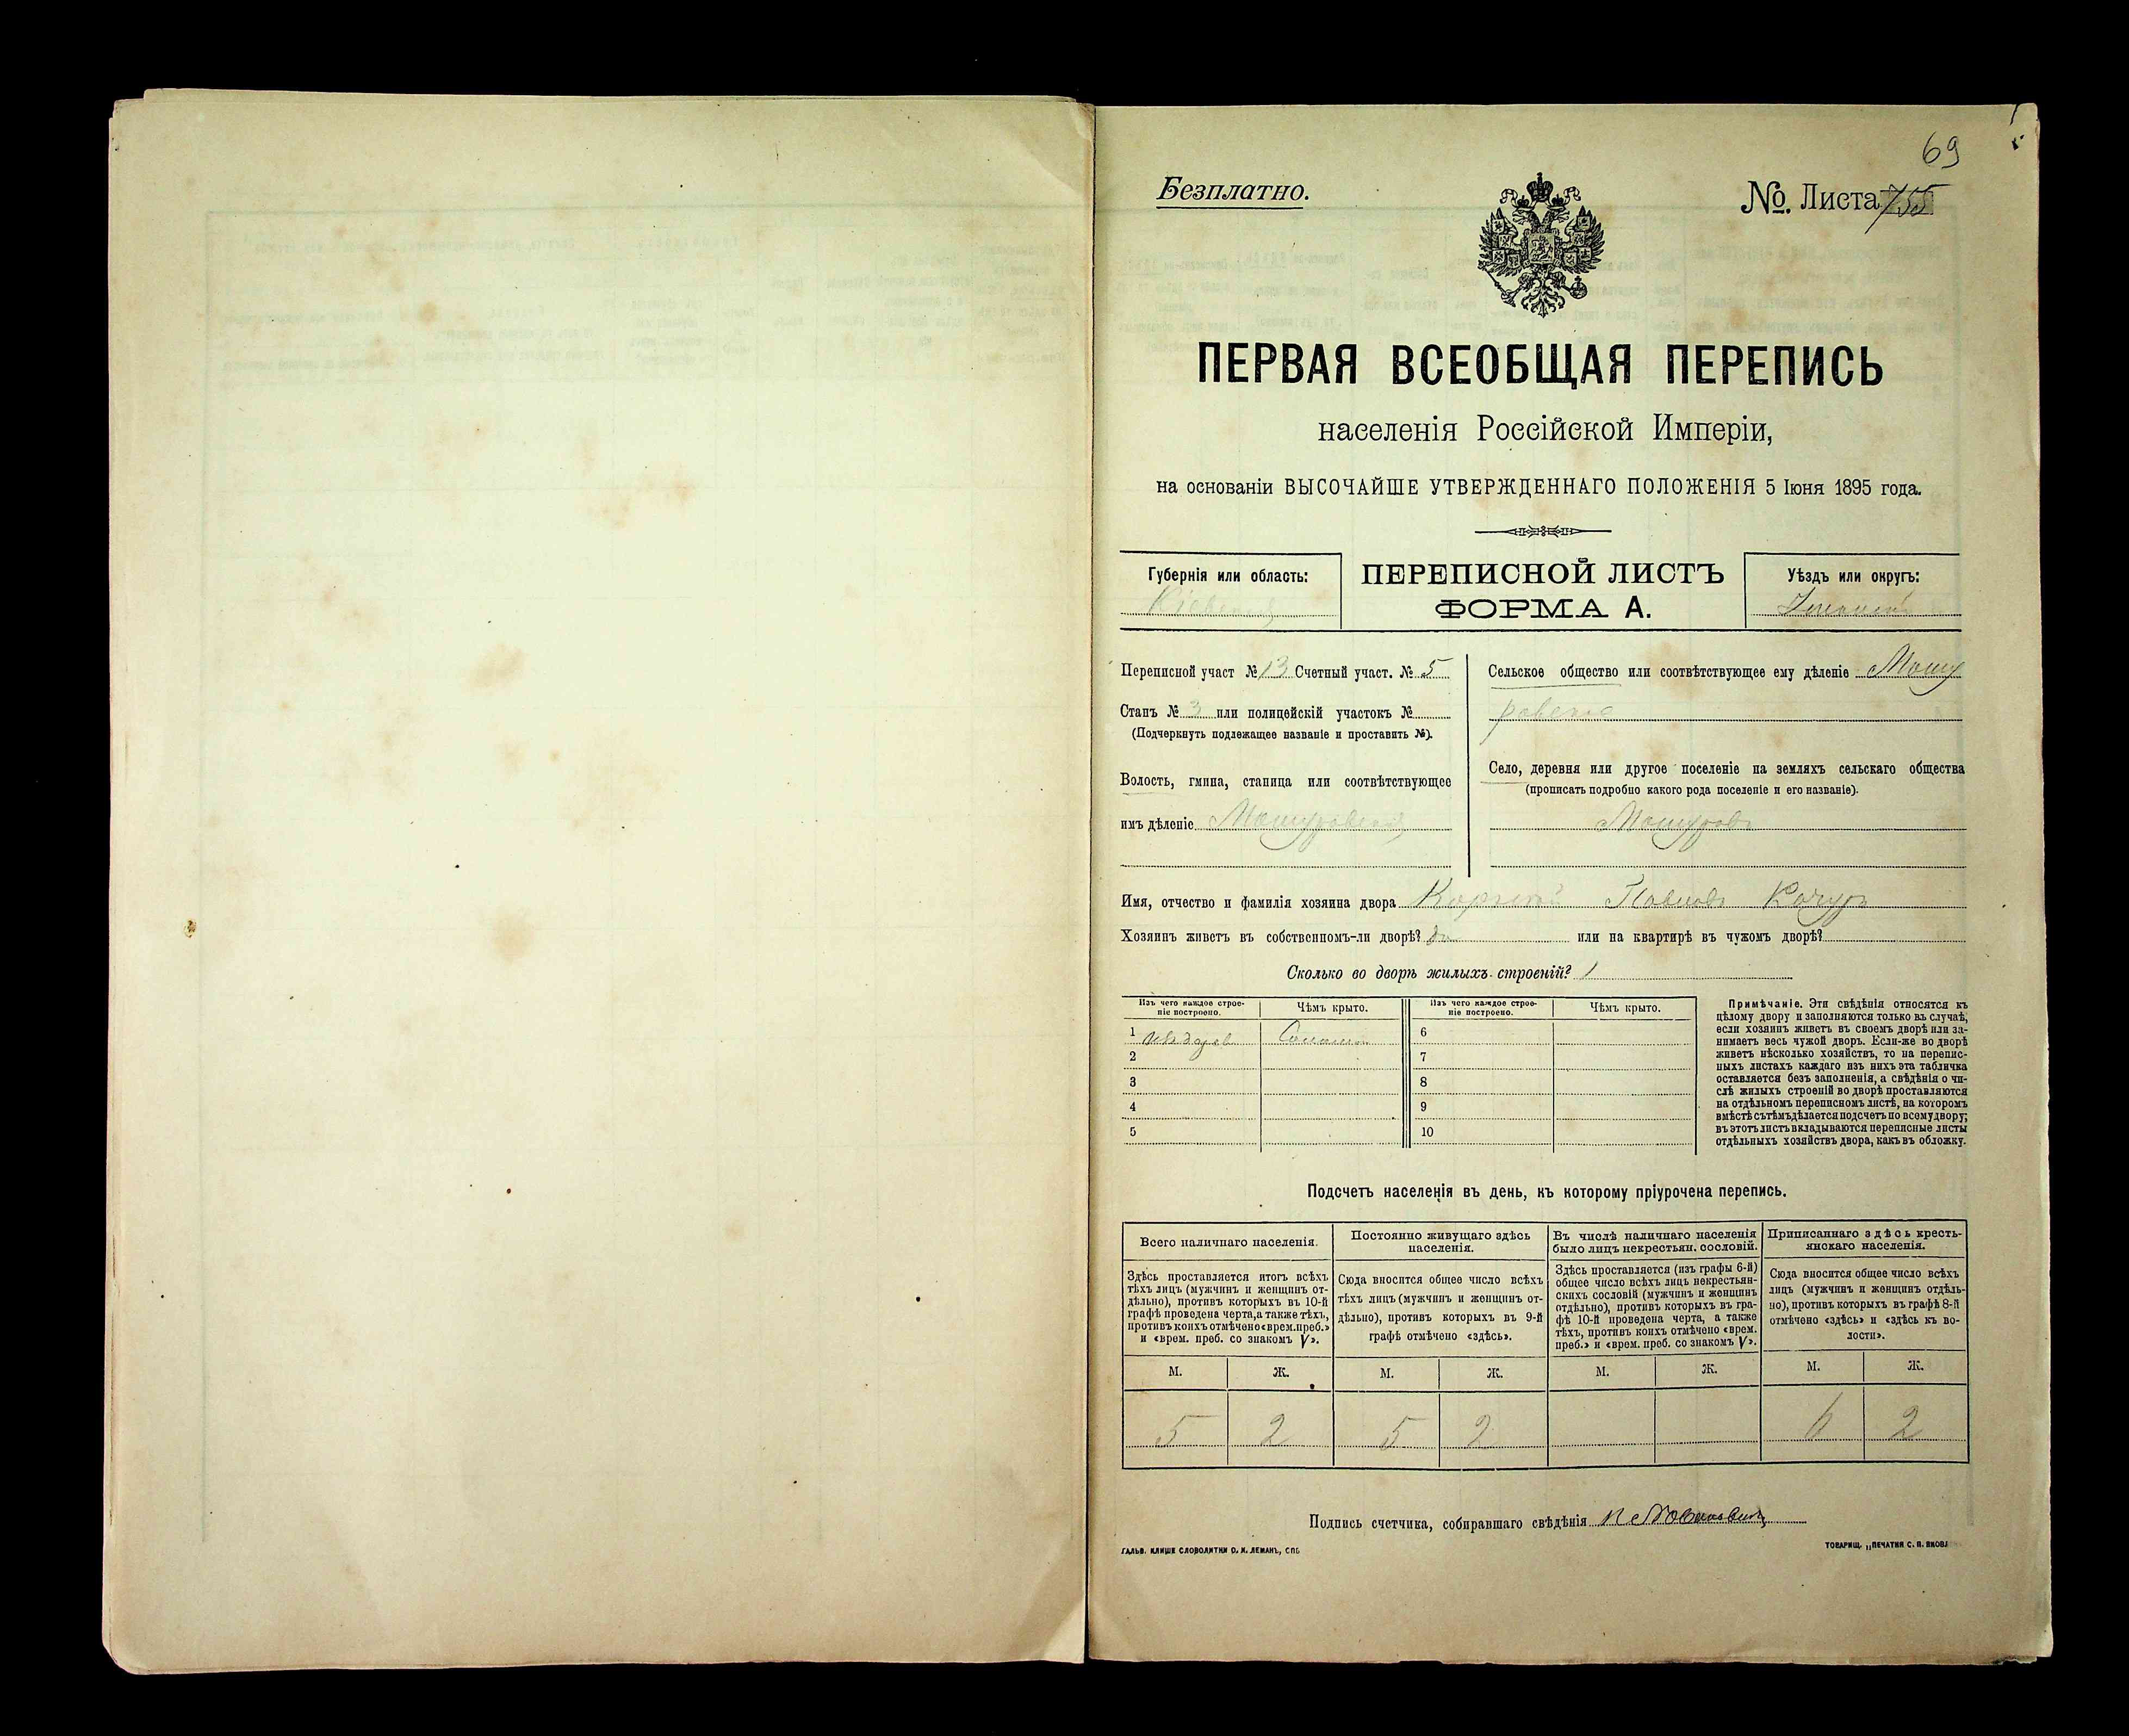 69
Безплатно.
№. Листа 755
ПЕРВАЯ ВСЕОБЩАЯ ПЕРЕПИСЬ
населенія Россійской Имперіи,
на основаніи ВЫСОЧАЙШЕ УТВЕРЖДЕННАГО ПОЛОЖЕНІЯ 5 Іюня 1895 года.
Губернія или область:
Кіевская
ПЕРЕПИСНОЙ ЛИСТЪ
ФОРМА А.
Уѣздъ или округъ:
Переписной участ № 13 Счетный участ. № 5
Станъ № 3 или полицейскій участокъ №
(Подчеркнуть подлежащее названіе и проставить №).
Волость, гмина, станица или соотвѣтствующее
имъ дѣленіе Машуровская
Сельское общество или соотвѣтствующее ему дѣленіе Машу
ровское
Село, деревня или другое поселеніе на земляхъ сельскаго общества
(прописать подробно какого рода поселеніе и его названіе).
Машуровъ
Имя, отчество и фамилія хозяина двора Павловъ Качуръ
Хозяинъ живетъ въ собственномъ-ли дворѣ? да или на квартирѣ въ чужомъ дворѣ?
Сколько во дворѣ жилыхъ строеній? 1
Изъ чего каждое строе-
ніе построено.
Чѣмъ крыто.
Изъ чего каждое строе-
ніе построено.
Чѣмъ крыто.
1 Соломой 6
2 7
3 8
4 9
5 10
Примѣчаніе. Эти свѣдѣнія относятся къ
цѣлому двору и заполняются только въ случаѣ,
если хозяинъ живетъ въ своемъ дворѣ или за-
нимаетъ весь чужой дворъ. Если-же во дворѣ
живетъ нѣсколько хозяйствъ, то на перепис-
ныхъ листахъ каждаго изъ нихъ эта табличка
оставляется безъ заполненія, а свѣдѣнія о чи-
слѣ жилыхъ строеній во дворѣ проставляются
на отдѣльномъ переписномъ листѣ, на которомъ
вмѣстѣ съ тѣмъ дѣлается подсчетъ по всему двору;
въ этотъ листъ вкладываются переписные листы
отдѣльныхъ хозяйствъ двора, какъ въ обложку.
Подсчетъ населенія въ день, къ которому пріурочена перепись.
Всего наличнаго населенія.
Здѣсь проставляется итогъ всѣхъ
тѣхъ лицъ (мужчинъ и женщинъ от-
дѣльно), противъ которыхъ въ 10-й
графѣ проведена черта, а также тѣхъ,
противъ коихъ отмѣчено «врем. преб.»
и «врем. преб. со знакомъ V».
Постоянно живущаго здѣсь
населенія.
Сюда вносится общее число всѣхъ
тѣхъ лицъ (мужчинъ и женщинъ от-
дѣльно), противъ которыхъ въ 9-й
графѣ отмѣчено «здѣсь».
Въ числѣ наличнаго населенія
было лицъ некрестьян. сословій.
Здѣсь проставляется (изъ графы 6-й)
общее число всѣхъ лицъ некрестьян-
скихъ сословій (мужчинъ и женщинъ
отдѣльно), противъ которыхъ въ гра-
фѣ 10-й проведена черта, а также
тѣхъ, противъ коихъ отмѣчено «врем.
преб.» и «врем. преб. со знакомъ V».
Приписаннаго здѣсь кресть-
янскаго населенія.
Сюда вносится общее число всѣхъ
лицъ (мужчинъ и женщинъ отдѣль-
но), противъ которыхъ въ графѣ 8-й
отмѣчено «здѣсь» и «здѣсь къ во-
лости».
М. Ж. М. Ж. М. Ж. М. Ж.
5 2 5 2 6 2
Подпись счетчика, собиравшаго свѣдѣнія
ГАЛЬВ. КЛИШЕ СЛОВОЛИТНИ О. И. ЛЕМАНЪ, СПБ
ТОВАРИЩ. „ПЕЧАТНЯ С. П. ЯКОВЛ